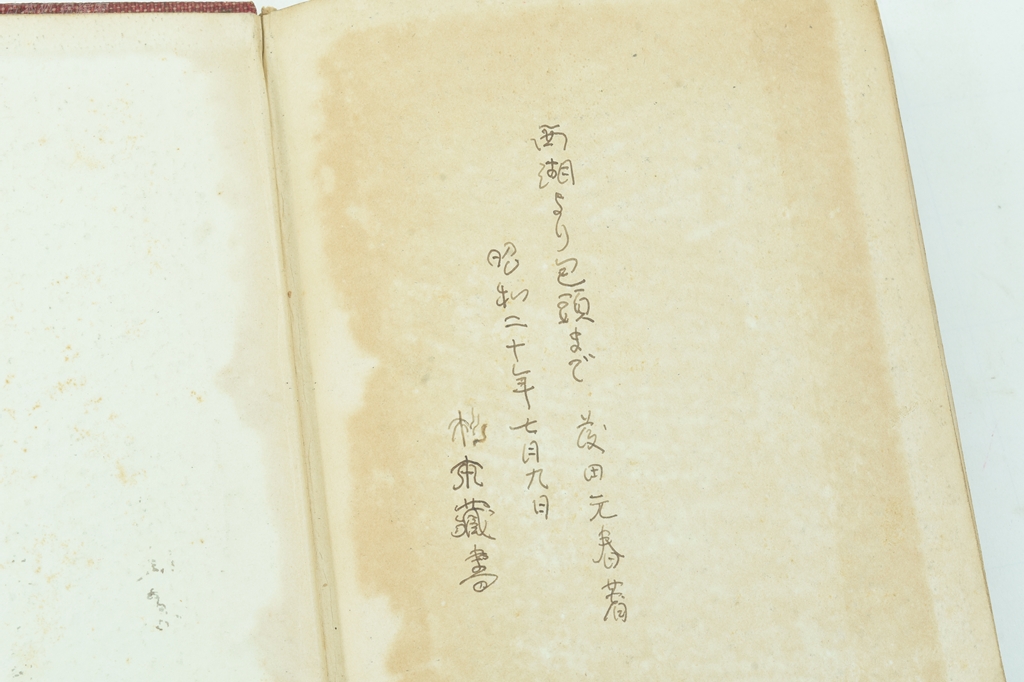 西湖より包頭まで 藤田元春著
昭和二十年七月九日
藏書